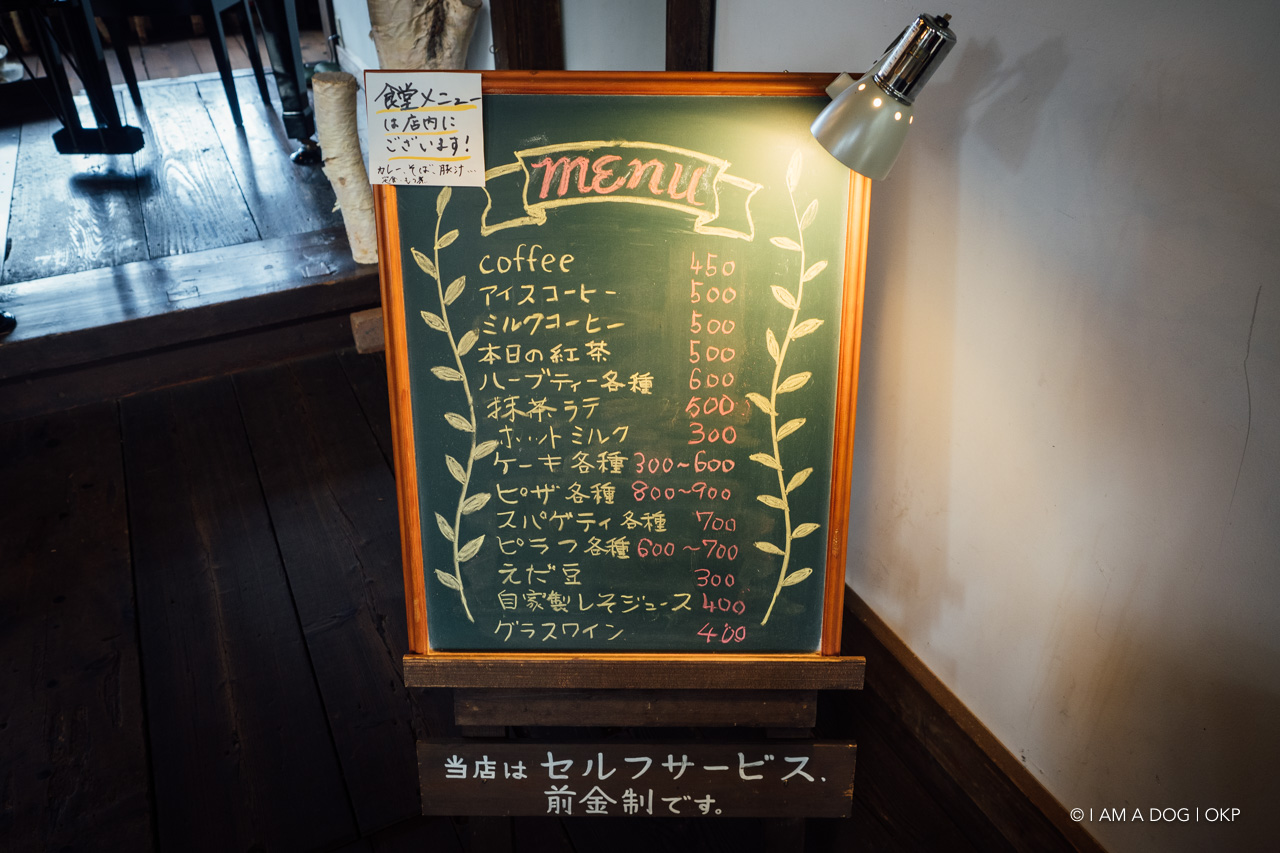 食堂メニュー
は店内に
ございます!
カレー、そば、豚汁…
menu
coffee 450
アイスコーヒー 500
ミルクコーヒー 500
本日の紅茶 500
ハーブティー各種 600
抹茶ラテ 500
ホットミルク 300
ケーキ各種 300~600
ピザ各種 800~900
スパゲティ各種 700
ピラフ各種 600~700
えだ豆 300
自家製しそジュース 400
グラスワイン 400
当店は セルフサービス、
前金制です。
© I AM A DOG | OKP